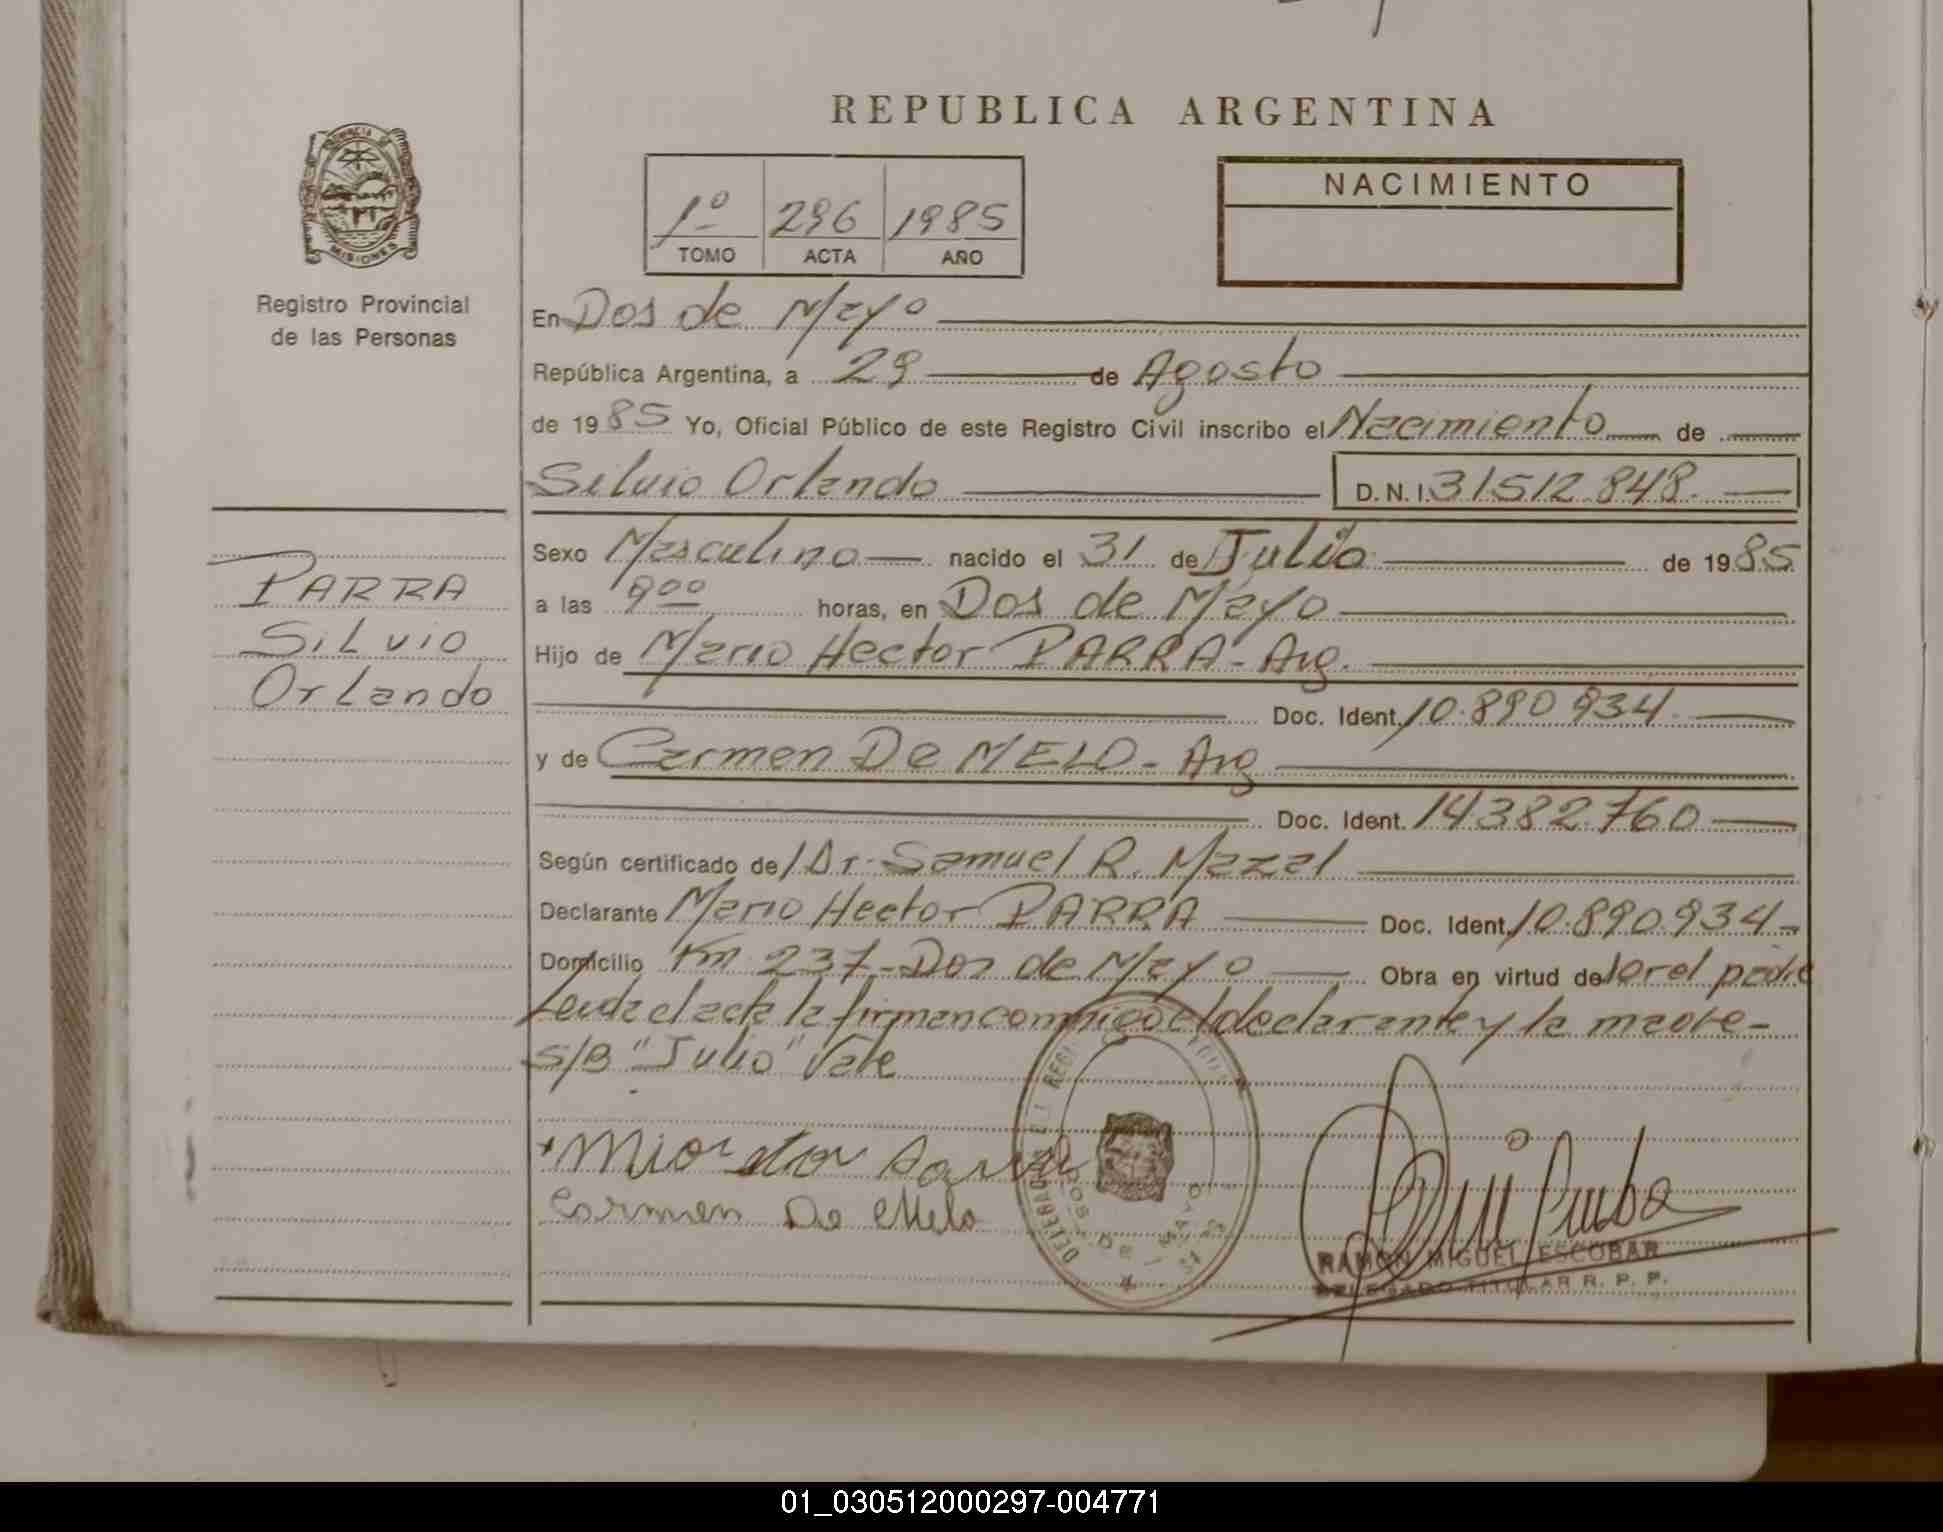 REPUBLICA ARGENTINA
PROVINCIA DE
MISIONES
Registro Provincial
de las Personas
1º 296 1985
TOMO ACTA AÑO
NACIMIENTO
En Dos de Mayo
República Argentina, a 29 de Agosto
de 1985 Yo, Oficial Público de este Registro Civil inscribo el Nacimiento de
Silvio Orlando D.N.I. 31512848.
PARRA
SILVIO
Orlando
Sexo Masculino nacido el 31 de Julio de 1985
a las 9oo horas, en Dos de Mayo
Hijo de Mario Hector PARRA - Arg.
Doc. Ident. 10.890.934.
y de Carmen De MELO - Arg
Doc. Ident. 14382760
Según certificado del Dr. Samuel R. Mazal
Declarante Mario Hector PARRA Doc. Ident. 10.890.934-
Domicilio Km 237 - Dos de Mayo Obra en virtud de ser el padre
Leida el acta la firman conmigo el declarante y la madre-
S/B "Julio" Vale
Carmen De Melo
DOS DE MAYO
RAMON MIGUEL ESCOBAR
DELEGADO TITULAR R. P. P.
01_030512000297-004771